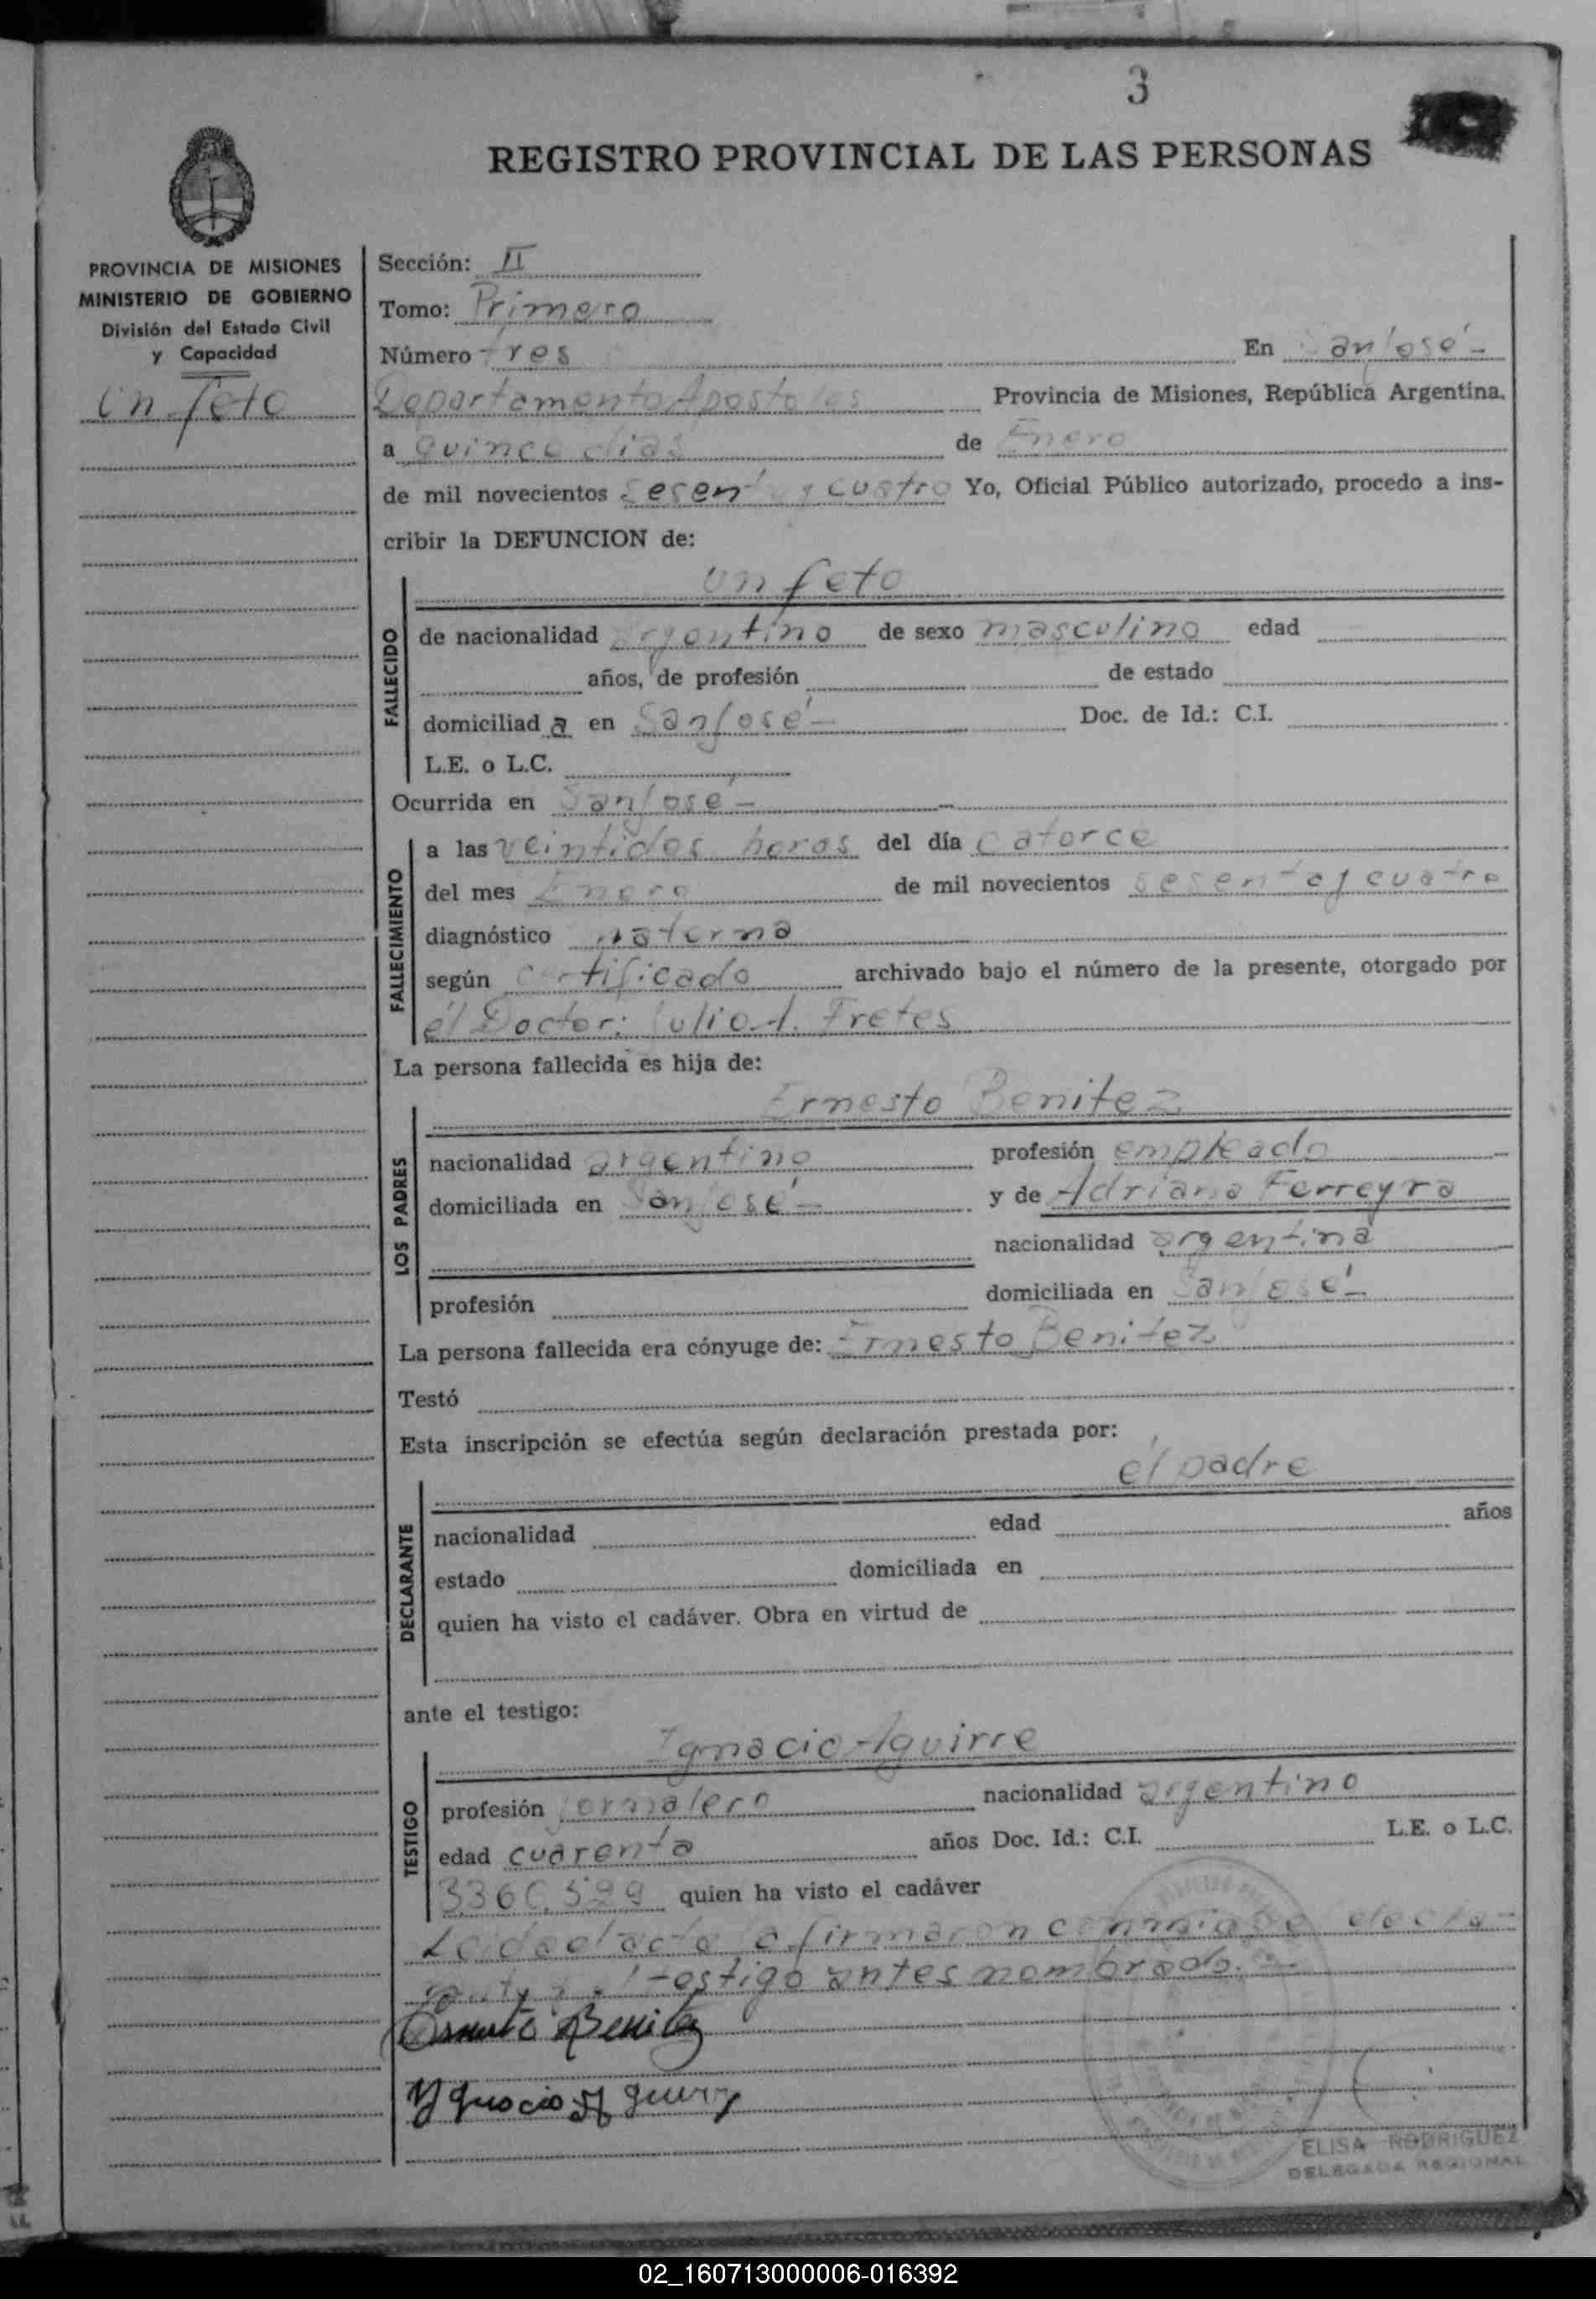 3
REGISTRO PROVINCIAL DE LAS PERSONAS
PROVINCIA DE MISIONES
MINISTERIO DE GOBIERNO
División del Estado Civil
y Capacidad
Un feto
Sección: II
Tomo: Primero
Número tres En San José -
Departamento Apostoles Provincia de Misiones, República Argentina.
a quince dias de Enero
de mil novecientos sesenta y cuatro Yo, Oficial Público autorizado, procedo a ins-
cribir la DEFUNCION de:
un feto
FALLECIDO
de nacionalidad argentino de sexo masculino edad
años, de profesión de estado
domiciliad a en San José - Doc. de Id.: C.I.
L.E. o L.C.
Ocurrida en San José -
FALLECIMIENTO
a las veintidos horas del día catorce
del mes Enero de mil novecientos sesenta y cuatro
diagnóstico
según certificado archivado bajo el número de la presente, otorgado por
él Doctor: Julio A. Fretes
La persona fallecida es hija de:
Ernesto Benitez
LOS PADRES
nacionalidad argentino profesión empleado
domiciliada en San José - y de Adriana Ferreyra
nacionalidad argentina
profesión domiciliada en San José -
La persona fallecida era cónyuge de: Ernesto Benitez
Testó
Esta inscripción se efectúa según declaración prestada por:
él padre
DECLARANTE
nacionalidad edad años
estado domiciliada en
quien ha visto el cadáver. Obra en virtud de
ante el testigo:
Ignacio Aguirre
TESTIGO
profesión jornalero nacionalidad argentino
edad cuarenta años Doc. Id.: C.I. L.E. o L.C.
3.360.529 quien ha visto el cadáver
Leida el acta la firmaron conmigo el decla-
rante y el testigo antes nombrado.
Ernesto Benitez
Ygnacio A
ELISA RODRIGUEZ
DELEGADA REGIONAL
02_160713000006-016392